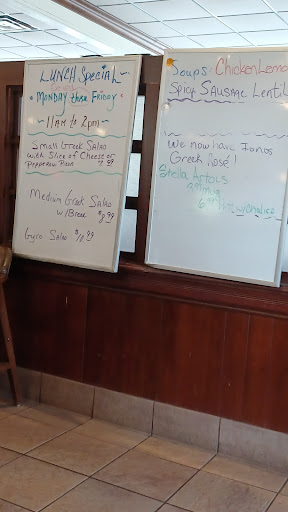 LUNCH Special
Monday thru Friday
~ 11AM to 2pm ~
Small Greek Salad
with Slice of Cheese or
Pepperoni Pizza 7.99
Medium Greek Salad
w/Bread $9.99
Gyro Salad
Soups: Chicken Lemo
Spicy SAUSAGE Lentil
We now have Ionos
Greek Rosé!
Stella Artois
w/Chalice